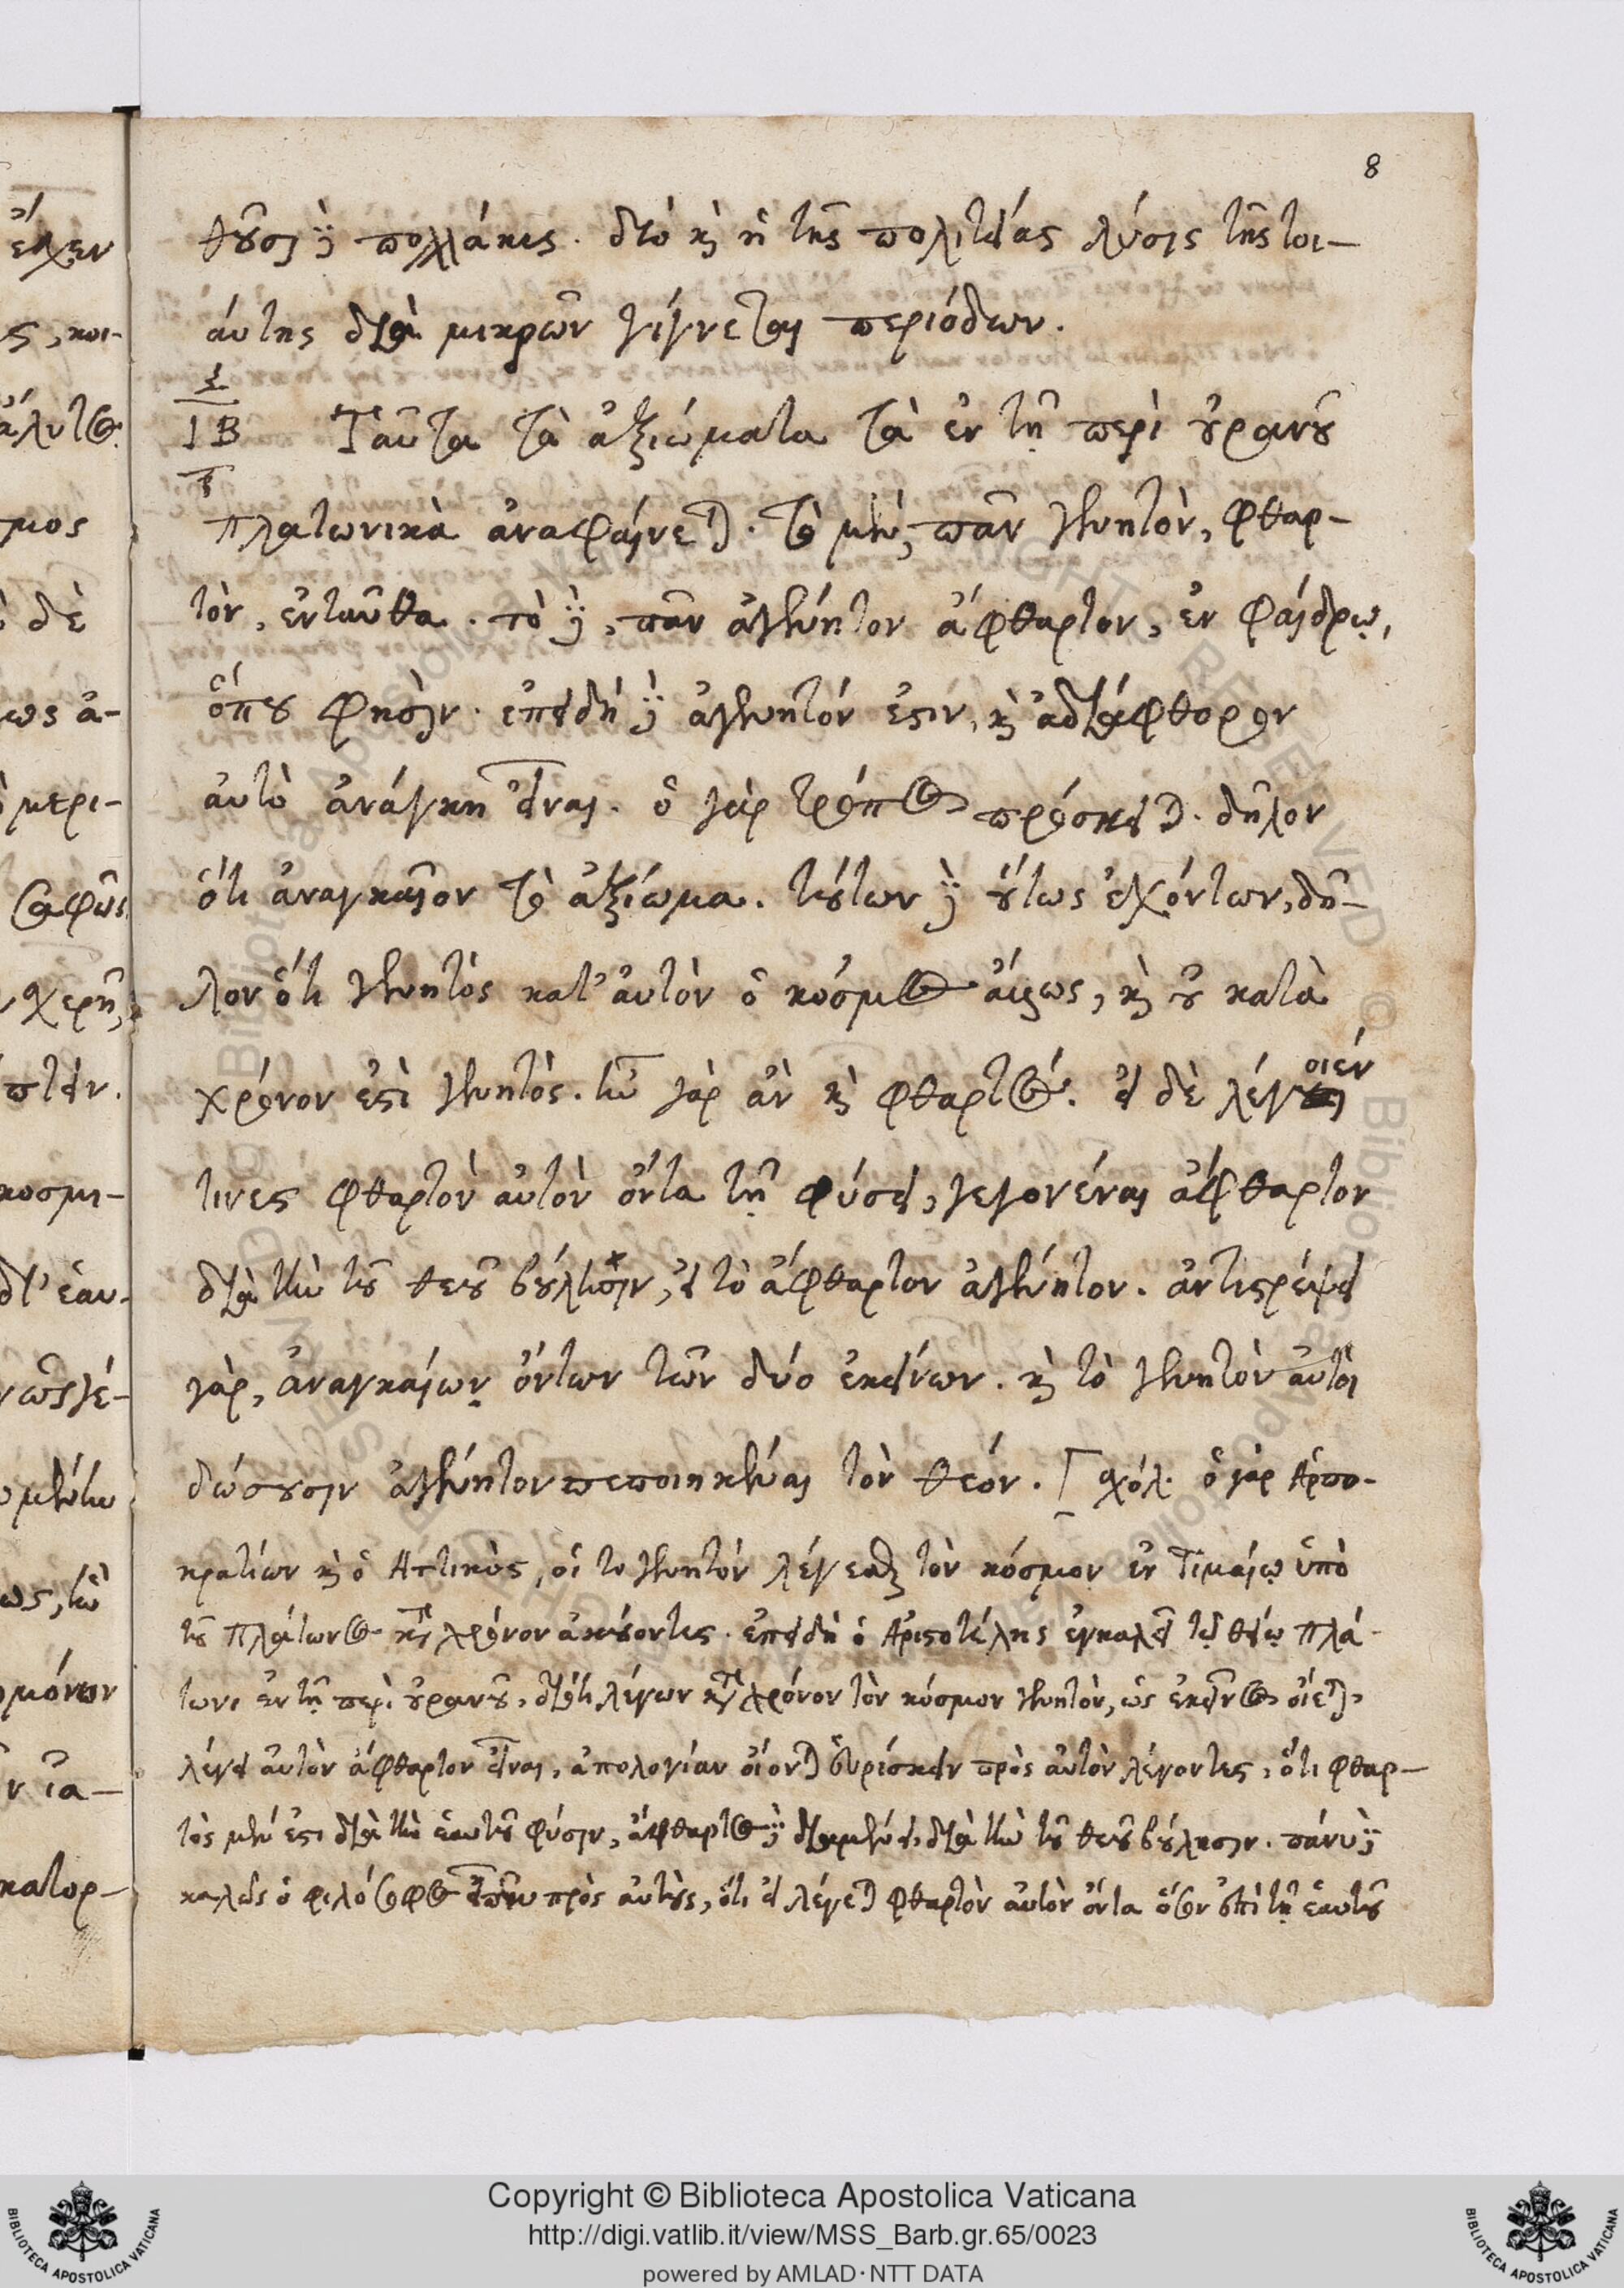 8
θοῦσι δὲ πολλάκις. διὸ καὶ ἡ τῆς πολιτείας λύσις τῆς τοι-
αύτης διὰ μικρῶν γίγνεται περιόδων.
ΙΒ Ταῦτα τὰ ἀξιώματα τὰ ἐν τῇ περὶ οὐρανοῦ
πλατωνικὰ ἀναφαίνεται. τὸ μὲν, πᾶν γενητὸν, φθαρ-
τὸν, ἐνταῦθα. τὸ δὲ, πᾶν ἀγένητον ἄφθαρτον, ἐν Φαίδρῳ,
ὅπου φησὶν. ἐπειδὴ δὲ ἀγενητόν ἐστιν, καὶ ἀδιάφθορον
αὐτὸ ἀνάγκη εἶναι. ὁ γὰρ τρόπος πρόσκειται. δῆλον
ὅτι ἀναγκαῖον τὸ ἀξίωμα. τούτων δὲ οὕτως ἐχόντων, δῆ-
λον ὅτι γενητός κατ' αὐτὸν ὁ κόσμος ἄλλως, καὶ οὐ κατὰ
χρόνον ἐστὶ γενητὸς. ἦν γὰρ ἂν καὶ φθαρτός. εἰ δὲ λέγοιέν
τινες φθαρτὸν αὐτὸν ὄντα τῇ φύσει, γεγονέναι ἄφθαρτον
διὰ τὴν τοῦ θεοῦ βούλησιν, εἰ τὸ ἄφθαρτον ἀγένητον. ἀντιστρέψει
γὰρ, ἀναγκαίων ὄντων τῶν δύο ἐκείνων. καὶ τὸ γενητὸν αὐτοὶ
δώσουσιν ἀγένητον πεποιηκέναι τὸν θεόν. [σχόλ. ὁ γὰρ Ἁρπο-
κρατίων καὶ ὁ Ἀττικὸς, οἱ τὸ γενητόν λέγεσθαι τὸν κόσμον ἐν Τιμαίῳ ὑπὸ
τοῦ Πλάτωνος κατὰ χρόνον ἀκούοντες. ἐπειδὴ ὁ Ἀριστοτέλης ἐγκαλεῖ τῷ θείῳ Πλά-
τωνι ἐν τῇ περὶ οὐρανοῦ, διότι λέγων κατὰ χρόνον τὸν κόσμον γενητὸν, ὡς ἐκεῖνος οἴεται,
λέγει αὐτὸν ἄφθαρτον εἶναι, ἀπολογίαν οἴονται εὑρίσκειν πρὸς αὐτὸν λέγοντες, ὅτι φθαρ-
τὸς μέν ἐστι διὰ τὴν ἑαυτοῦ φύσιν, ἄφθαρτος δὲ διαμένει διὰ τὴν τοῦ θεοῦ βούλησιν. πάνυ δὲ
καλῶς ὁ φιλόσοφος εἶπεν πρὸς αὐτοὺς, ὅτι εἰ λέγεται φθαρτὸν αὐτὸν ὄντα ὅσον ἐπὶ τῇ ἑαυτοῦ
Copyright © Biblioteca Apostolica Vaticana
http://digi.vatlib.it/view/MSS_Barb.gr.65/0023
powered by AMLAD·NTT DATA